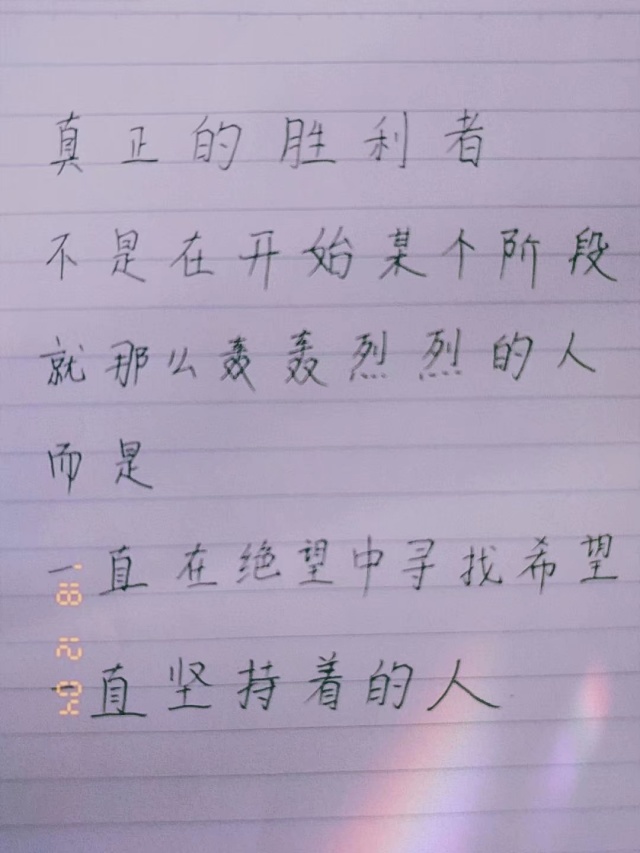 真正的胜利者
不是在开始某个阶段
就那么轰轰烈烈的人
而是
一直在绝望中寻找希望
一直坚持着的人
'18 12 04